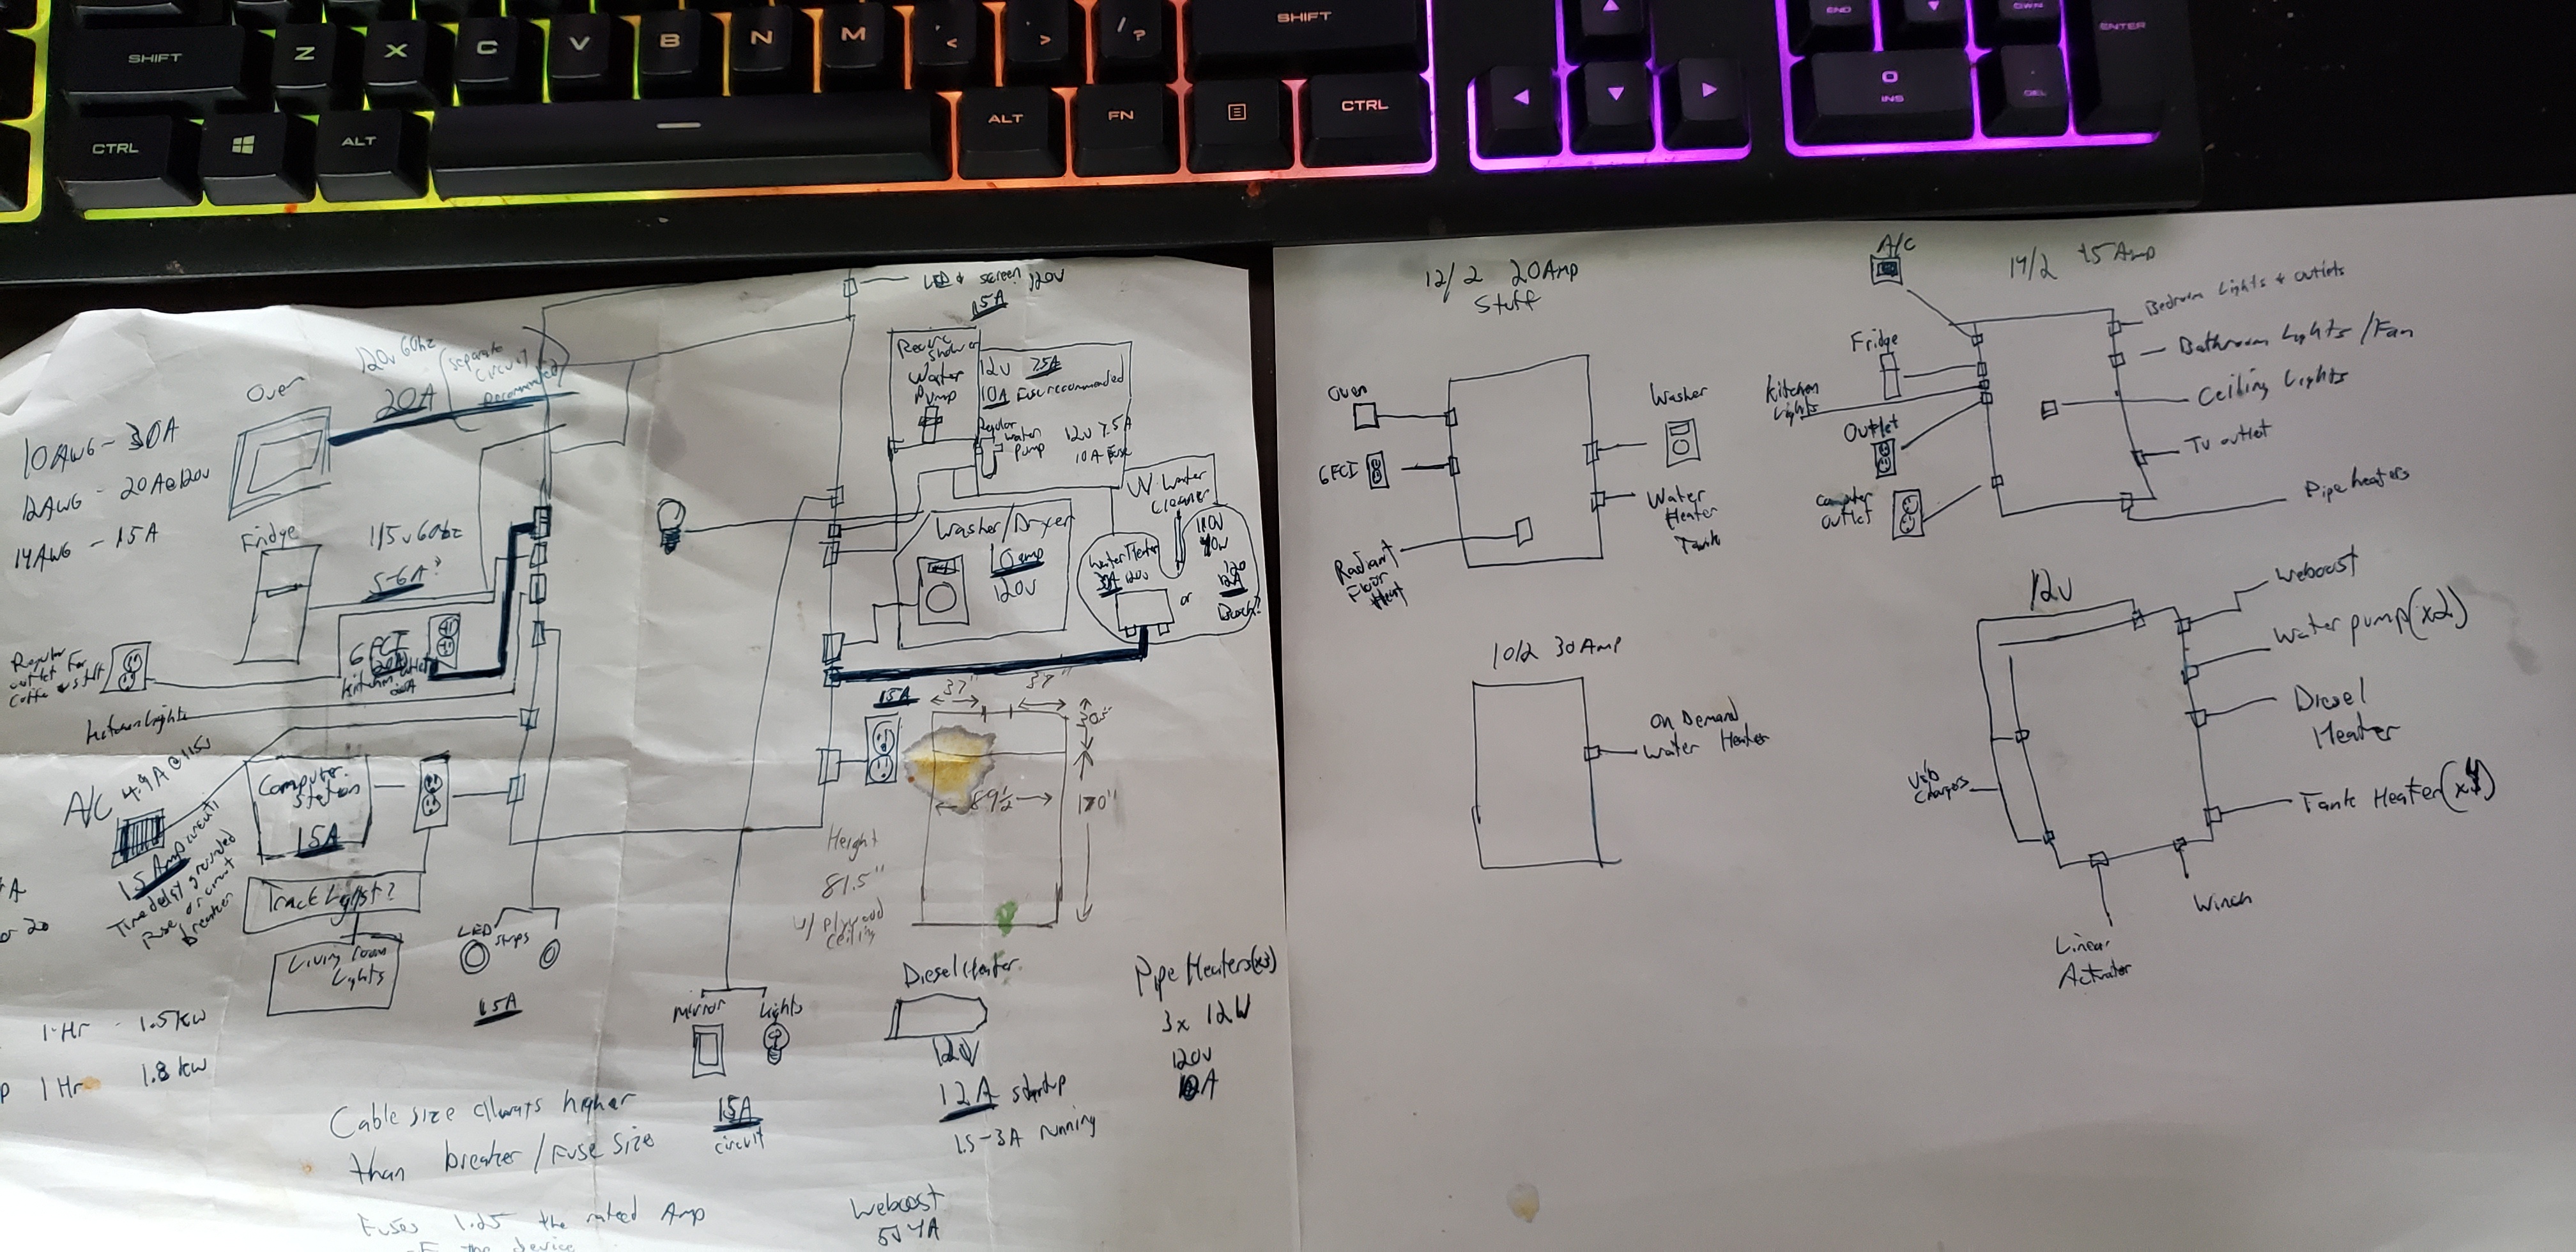 SHIFT
Z X C V B N M < > / ? SHIFT
CTRL ALT ALT FN CTRL
END
0
INS
DEL
ENTER
LED & screen 120V
15A
120v 60hz
20A
(separate
circuit
recommended)
Oven
10AWG - 30A
12AWG - 20A@120v
14AWG - 15A
Fridge
115v 60hz
5-6A?
Regular
outlet for
GFCI
20A
Kitchen outlet
20A
Kitchen Lights
A/C 4.9A @ 115v
15 Amp circuit
Time delay grounded
Fuse or circuit
breaker
Computer
Station
15A
Track Lights?
Living room
Lights
LED
Strips
15A
1 Hr - 1.5kw
1 Hr 1.8 kw
Recirc
Shower
Water
Pump
12v 7.5A
10A Fuse recommended
Regular
water
pump
12v 7.5A
10A Fuse
UV Water
Cleaner
Washer/Dryer
10amp
120V
Water Heater
120v
or
15A
37" 37"
89 1/2
170"
Height
81.5"
w/ plywood
ceiling
Mirror
Lights
15A
circuit
Diesel Heater
12V
12A startup
1.5-3A running
Pipe Heaters(x3)
3x 12W
120v
Cable size always higher
than breaker/Fuse Size
Fuses 1.25 the rated Amp
of the device
Weboost
5V 4A
12/2 20Amp
Stuff
Oven
GFCI
Radiant
Floor
Heat
Washer
Water
Heater
Tank
10/2 30Amp
On Demand
Water Heater
14/2 15Amp
A/C
Fridge
Kitchen
Lights
Outlet
Computer
outlet
Bedroom Lights & outlets
Bathroom Lights/Fan
Ceiling Lights
TV outlet
Pipe heaters
12v
Weboost
Water pump(x2)
Diesel
Heater
Tank Heater(x4)
Winch
Linear
Actuator
Usb
Chargers